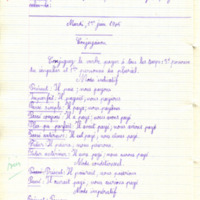 Mardi, 1er juin 1946
Conjugaison
Conjuguez le verbe payer à tous les temps 3e personne
du singulier et 1ère personne du pluriel.
Mode indicatif
Présent : Il paie ; nous payons
Imparfait : Il payait ; nous payions
Passé simple : Il paya ; nous payâmes
Passé composé : Il a payé ; nous avons payé
Plus que parfait : Il avait payé ; nous avions payé
Passé antérieur : Il eut payé ; nous eûmes payé
Futur : Il paiera ; nous paierons
Futur antérieur : Il aura payé ; nous aurons payé
Mode conditionnel
Présent : Il paierait ; nous paierions
Passé : Il aurait payé ; nous aurions payé
Mode impératif